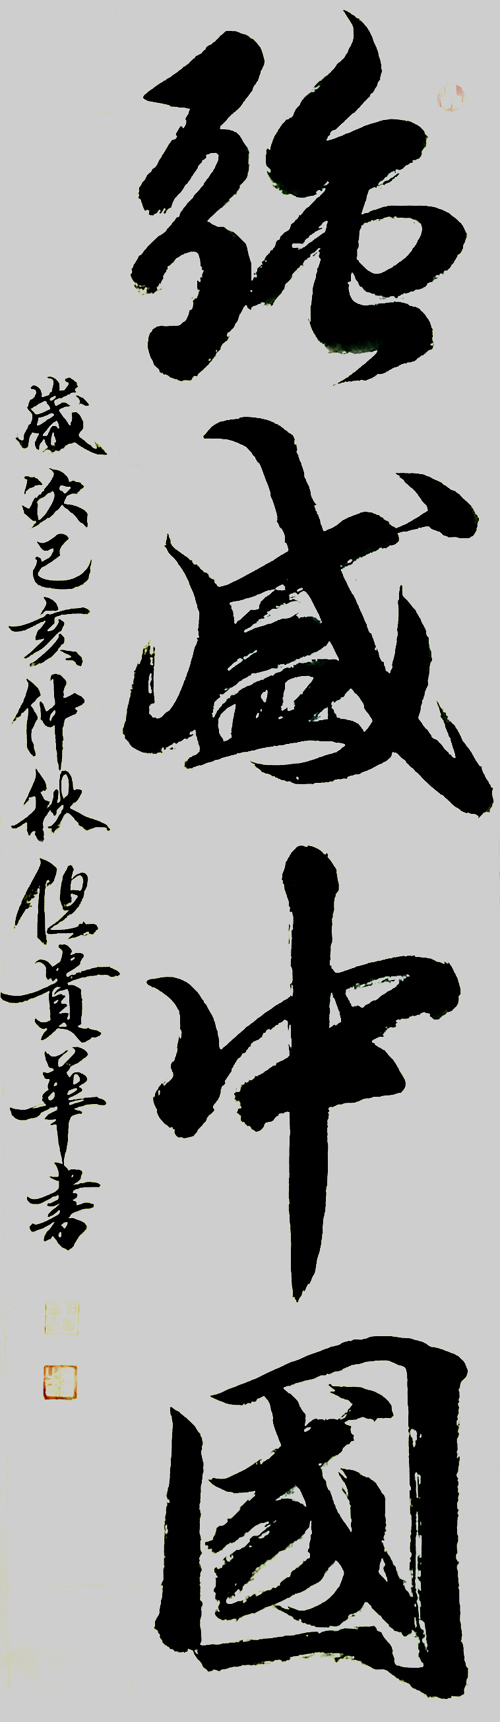 強盛中國
歲次己亥仲秋但貴華书